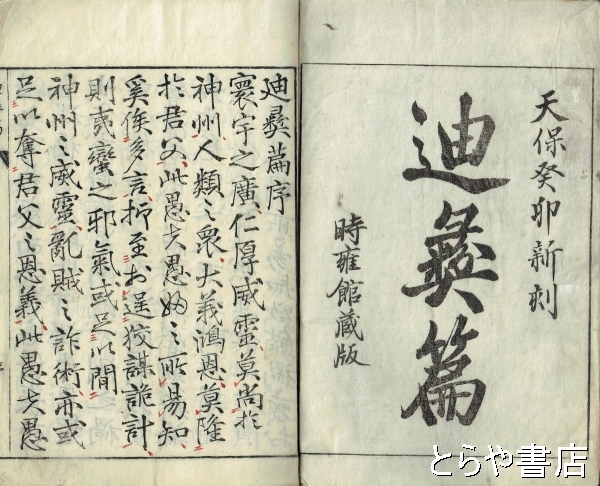 天保癸卯新刻
迪彝篇
時雍館蔵版
迪彝篇序
寰宇之廣仁厚威靈莫尚於
神州人類之衆大義鴻恩莫隆
於君父此愚夫愚婦之所易知
奚俟多言抑至於逞狡謀詭計
則戎蠻之邪氣或足以間
神州之威靈亂賊之詐術亦或
足以奪君父之恩義此愚夫愚
とらや書店